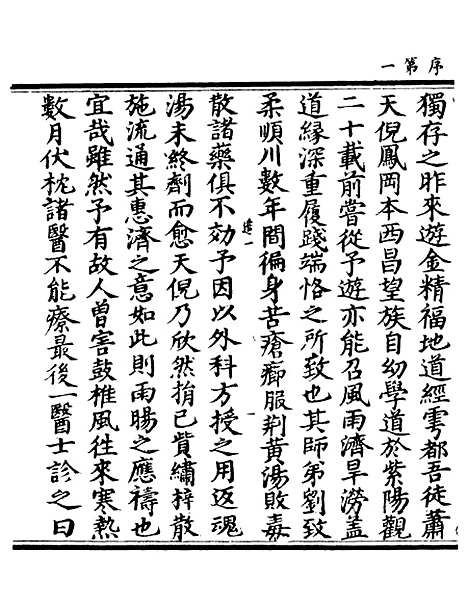 序第一
獨存之昨來遊金精福地道經雩都吾徒蕭
天倪鳳岡本西昌望族自幼學道於紫陽觀
二十載前嘗從予遊亦能召風雨濟旱澇蓋
道緣深重履踐端恪之所致也其師弟劉致
柔順川數年間徧身苦瘡癤服荆黄湯敗毒
散諸藥俱不効予因以外科方授之用返魂
湯未終劑而愈天倪乃欣然捐己貲繡梓散
施流通其惠濟之意如此則雨暘之應禱也
宜哉雖然予有故人曾害鼓椎風徃來寒熱
數月伏枕諸醫不能療最後一醫士診之曰